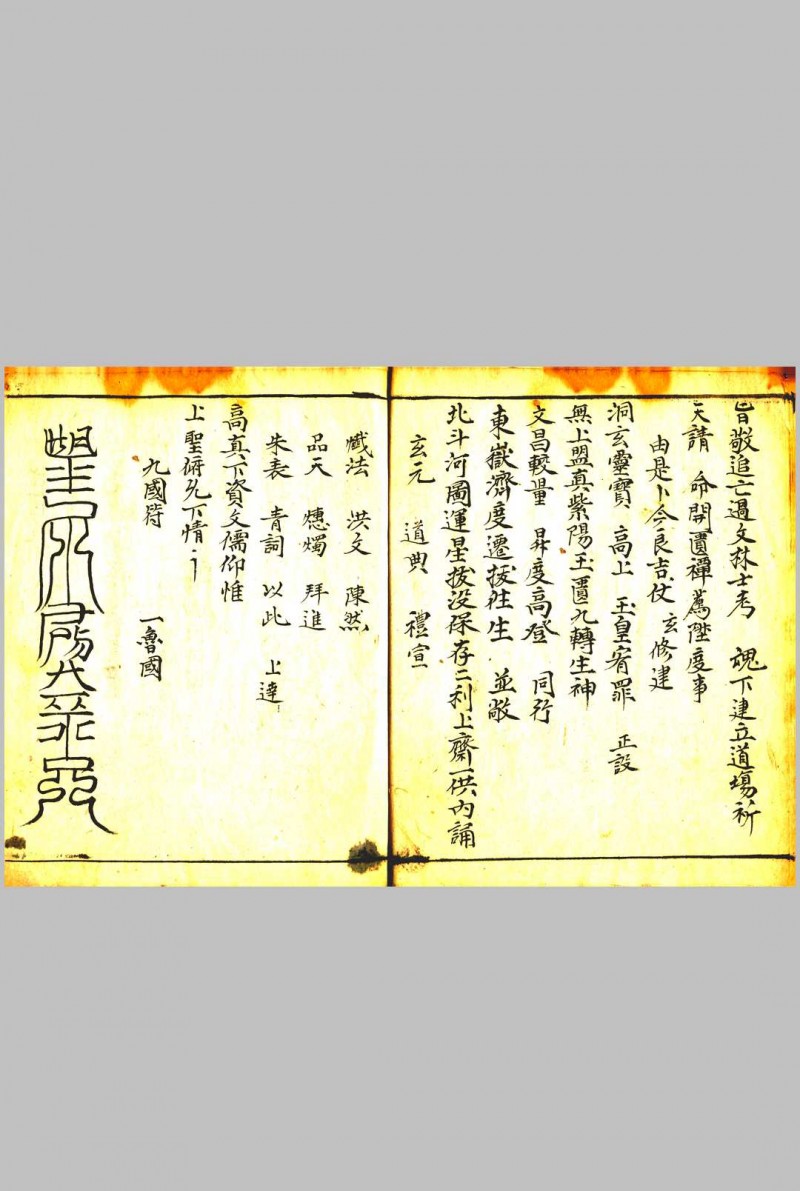 旨敬追亡過文林士考 魂下建立道場祈
天請 命開薦禪薦陞度事
由是卜今良吉仗 玄修建
洞玄靈寳 高上 玉皇宥罪 正設
無上盟真紫陽玉匱九轉生神
文昌較量 昇度高登 同行
東嶽濟度遷拔徃生 並敞
北斗河圖運星拔没保存二利上齋一供内誦
玄元 道典 禮宣
懴法 洪文 陳然
品天 燭 拜進
朱表 青詞 以此 上達
高真下資文儒仰惟
上聖俯允下情
九國符 一魯國